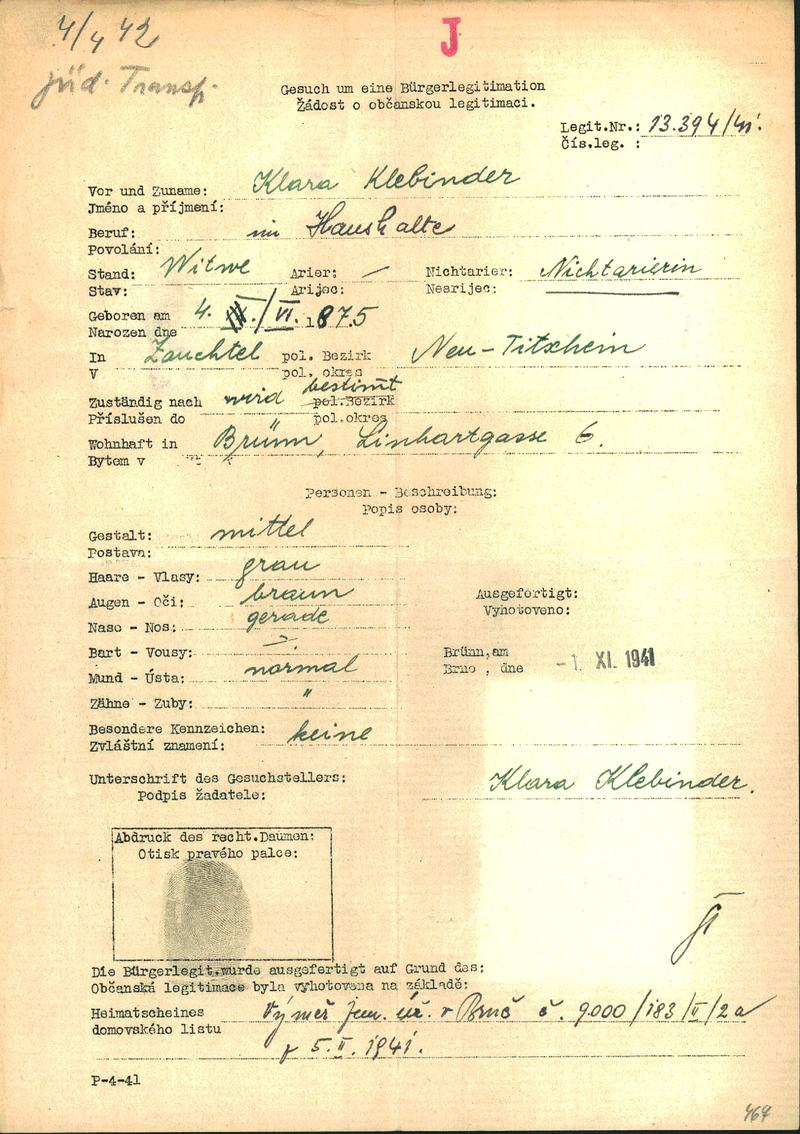 4/4 42
J
jüd. Transp.
Gesuch um eine Bürgerlegitimation
Žádost o občanskou legitimaci.
Legit.Nr.: 13.394/41.
Čís.leg. :
Vor und Zuname: Klara Klebinder
Jméno a příjmení:
Beruf: im Haushalte
Povolání:
Stand: Witwe Arier: / Nichtarier: Nichtarierin
Stav: Arijec: Nearijec:
Geboren am 4. /VI. 1875
Narozen dne
In Zauchtel pol. Bezirk Neu-Titschein
V pol. okres
Zuständig nach wird bestimt pol.Bezirk
Příslušen do pol.okres
Wohnhaft in Brünn, Linhartgasse 6.
Bytem v
Personen - Beschreibung:
Popis osoby:
Gestalt: mittel
Postava:
Haare - Vlasy: grau
Augen - Oči: braun
Nase - Nos: gerade
Ausgefertigt:
Vyhotoveno:
Bart - Vousy: -
Mund - Ústa: normal
Zähne - Zuby: "
Brünn, am
Brno , dne -1. XI. 1941
Besondere Kennzeichen: keine
Zvláštní znamení:
Unterschrift des Gesuchstellers: Klara Klebinder.
Podpis žadatele:
Abdruck des recht.Daumen:
Otisk pravého palce:
Die Bürgerlegit.wurde ausgefertigt auf Grund des:
Občanská legitimace byla vyhotovena na základě:
Heimatscheines Výměř zem. úř. v Brně č. 9000/183/II/2a
domovského listu
z 5. II. 1941.
P-4-41